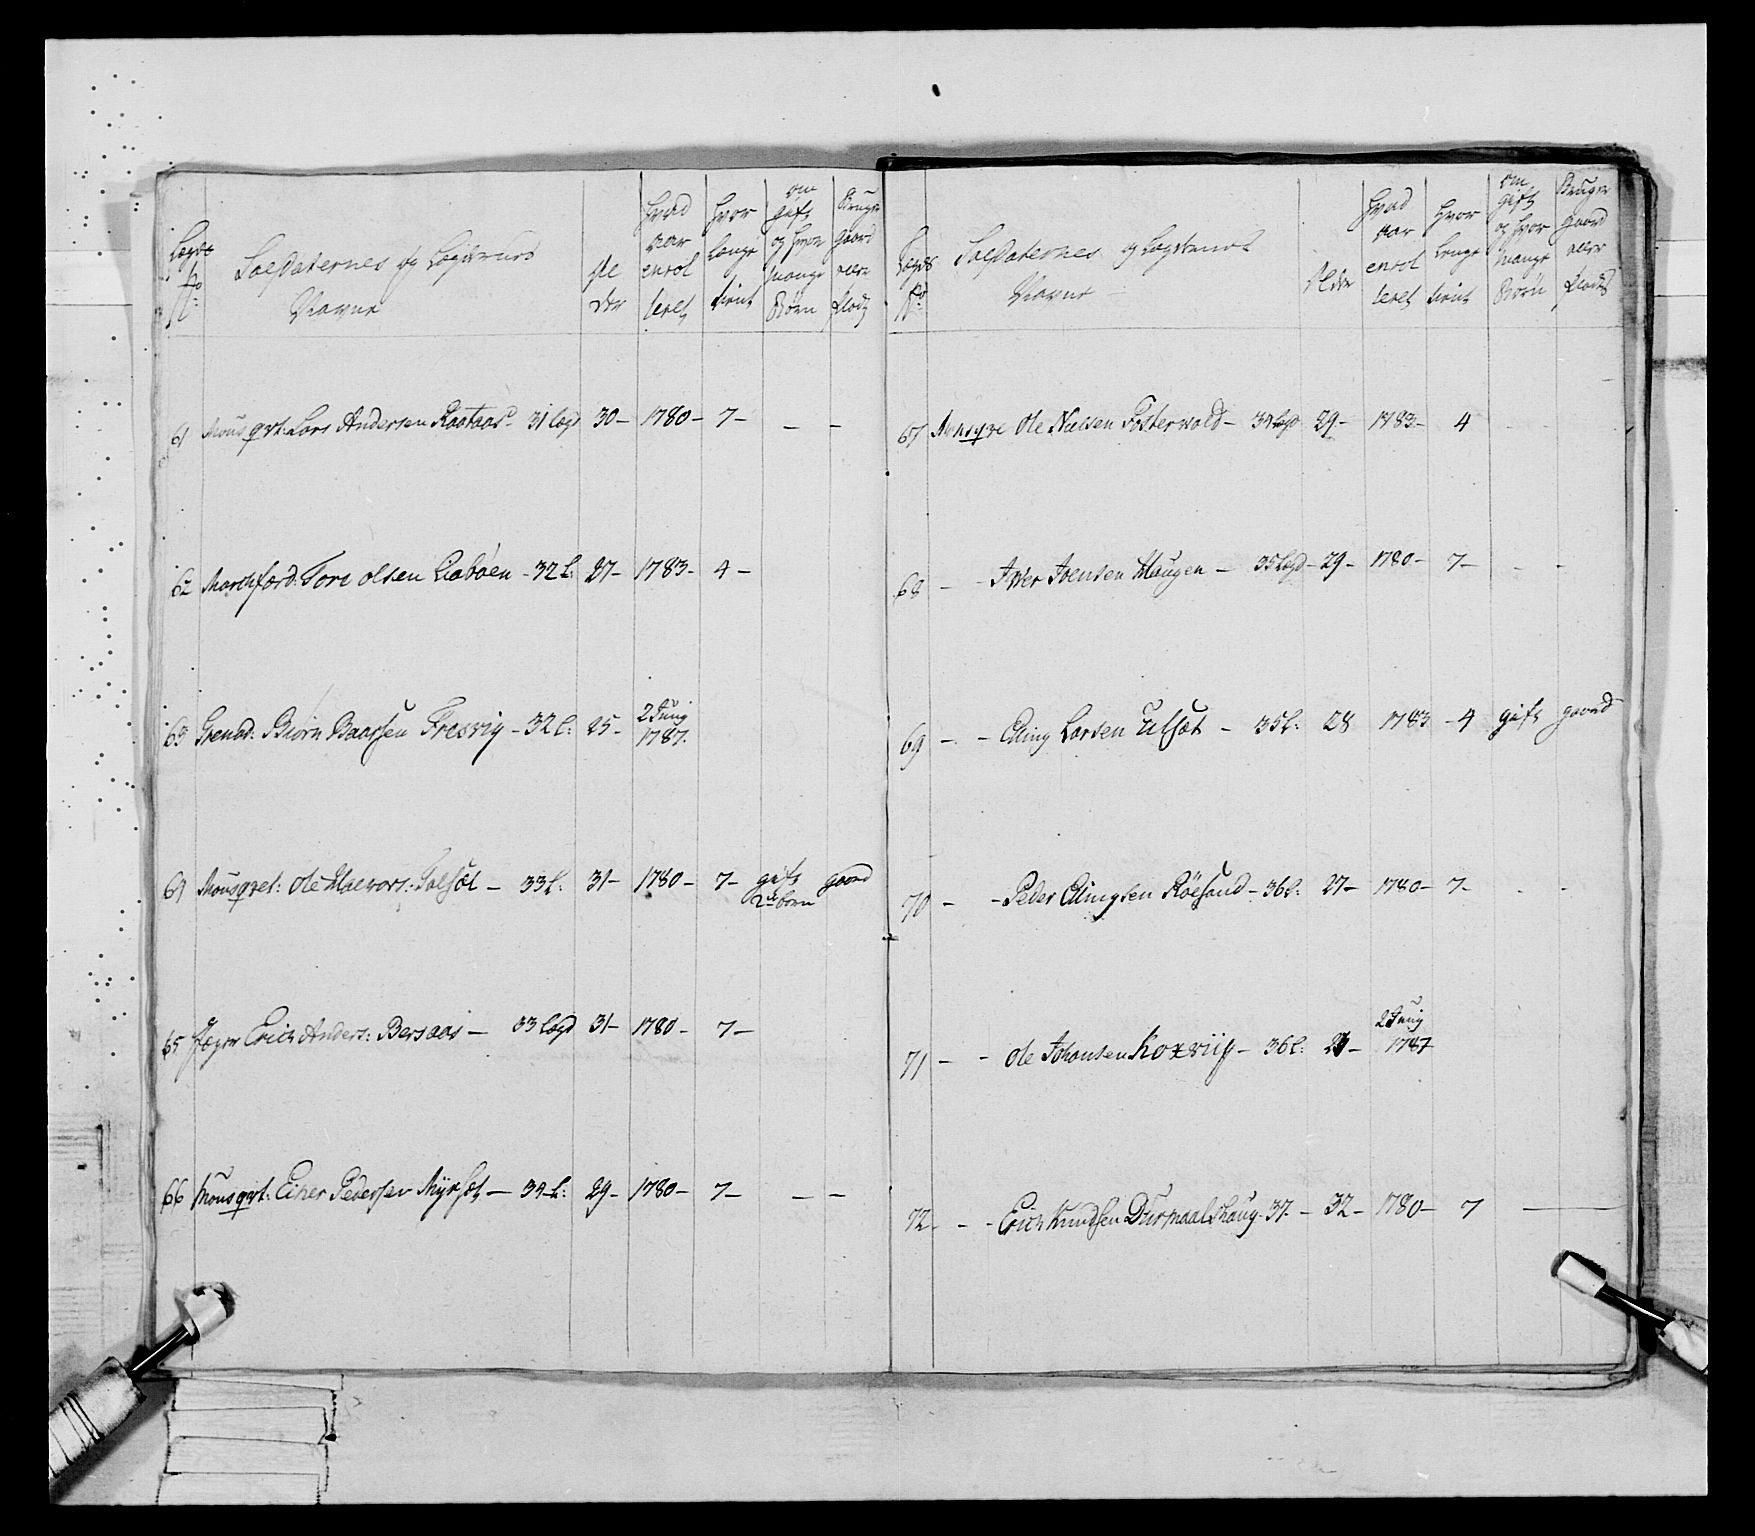 Lægds No: Soldaternes og Lægdernes Navne Alder hvad aar enrolleret hvor længe tient om gift og hvor mange Børn Bruger gaard eller Plads
61 Mousqvt: Lars Andersen Raataas - 31 Lægd 30 - 1780 - 7 - - -
62 Marchford: Tore Olsen Liabøen - 32 L: 27 - 1783 - 4 -
63 Grenad: Biørn Baarsen Fresvig - 32 L: 25 - 2 Juny 1787.
64 Mousqvet: Ole Halvors: - 33 L: 31 - 1780 - 7 - gift 2de børn gaard
65 Jæger Erich Anders: Bersaas - 33 Lægd 31 - 1780 - 7 -
66 Mousqvt: Einer Pedersen Myrset - 34 L: 29 - 1780 - 7 - - -
Lægds No: Soldaternes og Lægdernes Navne - Alder hvad aar enrolleret hvor længe tient om gift og hvor mange Børn Bruger gaard eller Plads
67 Ole Nielsen Fostervold - 34 Lægd 29 - 1783 - 4 - -
68 - Iver Joensen Haugen - 35 Lægd - 29 - 1780 - 7 - - -
69 - - Elling Larsen Ulset - 35 L: 28 1783 - 4 gift gaard
70 - - Peder Ellingsen Røesand - 36 L: 27 - 1780 - 7 - - -
71 - - Ole Johansen Koxviig - 36 L: - 2 Juny 1787
72 - - - Erich Knudsen Durmaalshaug - 37 - 32 - 1780 - 7 -